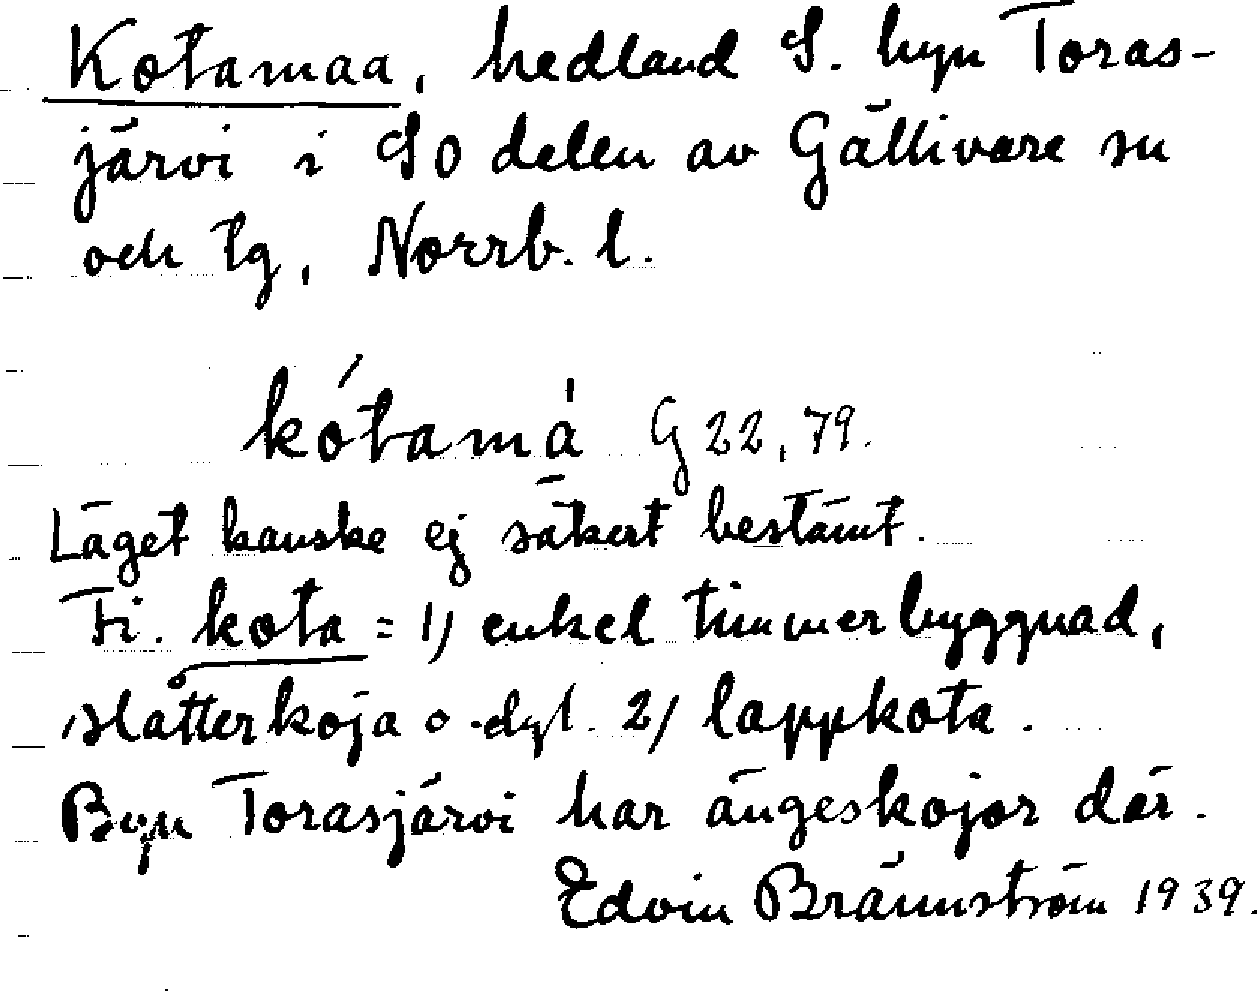 Kotamaa, hedland S. byn Toras-
järvi i SO delen av Gällivare sn
och tg, Norrb. l.
kótamá G 22, 79.
Läget kanske ej säkert bestämt.
Fi. kota = 1) enkel timmerbyggnad,
slåtterkoja o. dyl. 2) lappkota.
Byn Torasjärvi har ängeskojor där.
Edvin Brännström 1939.